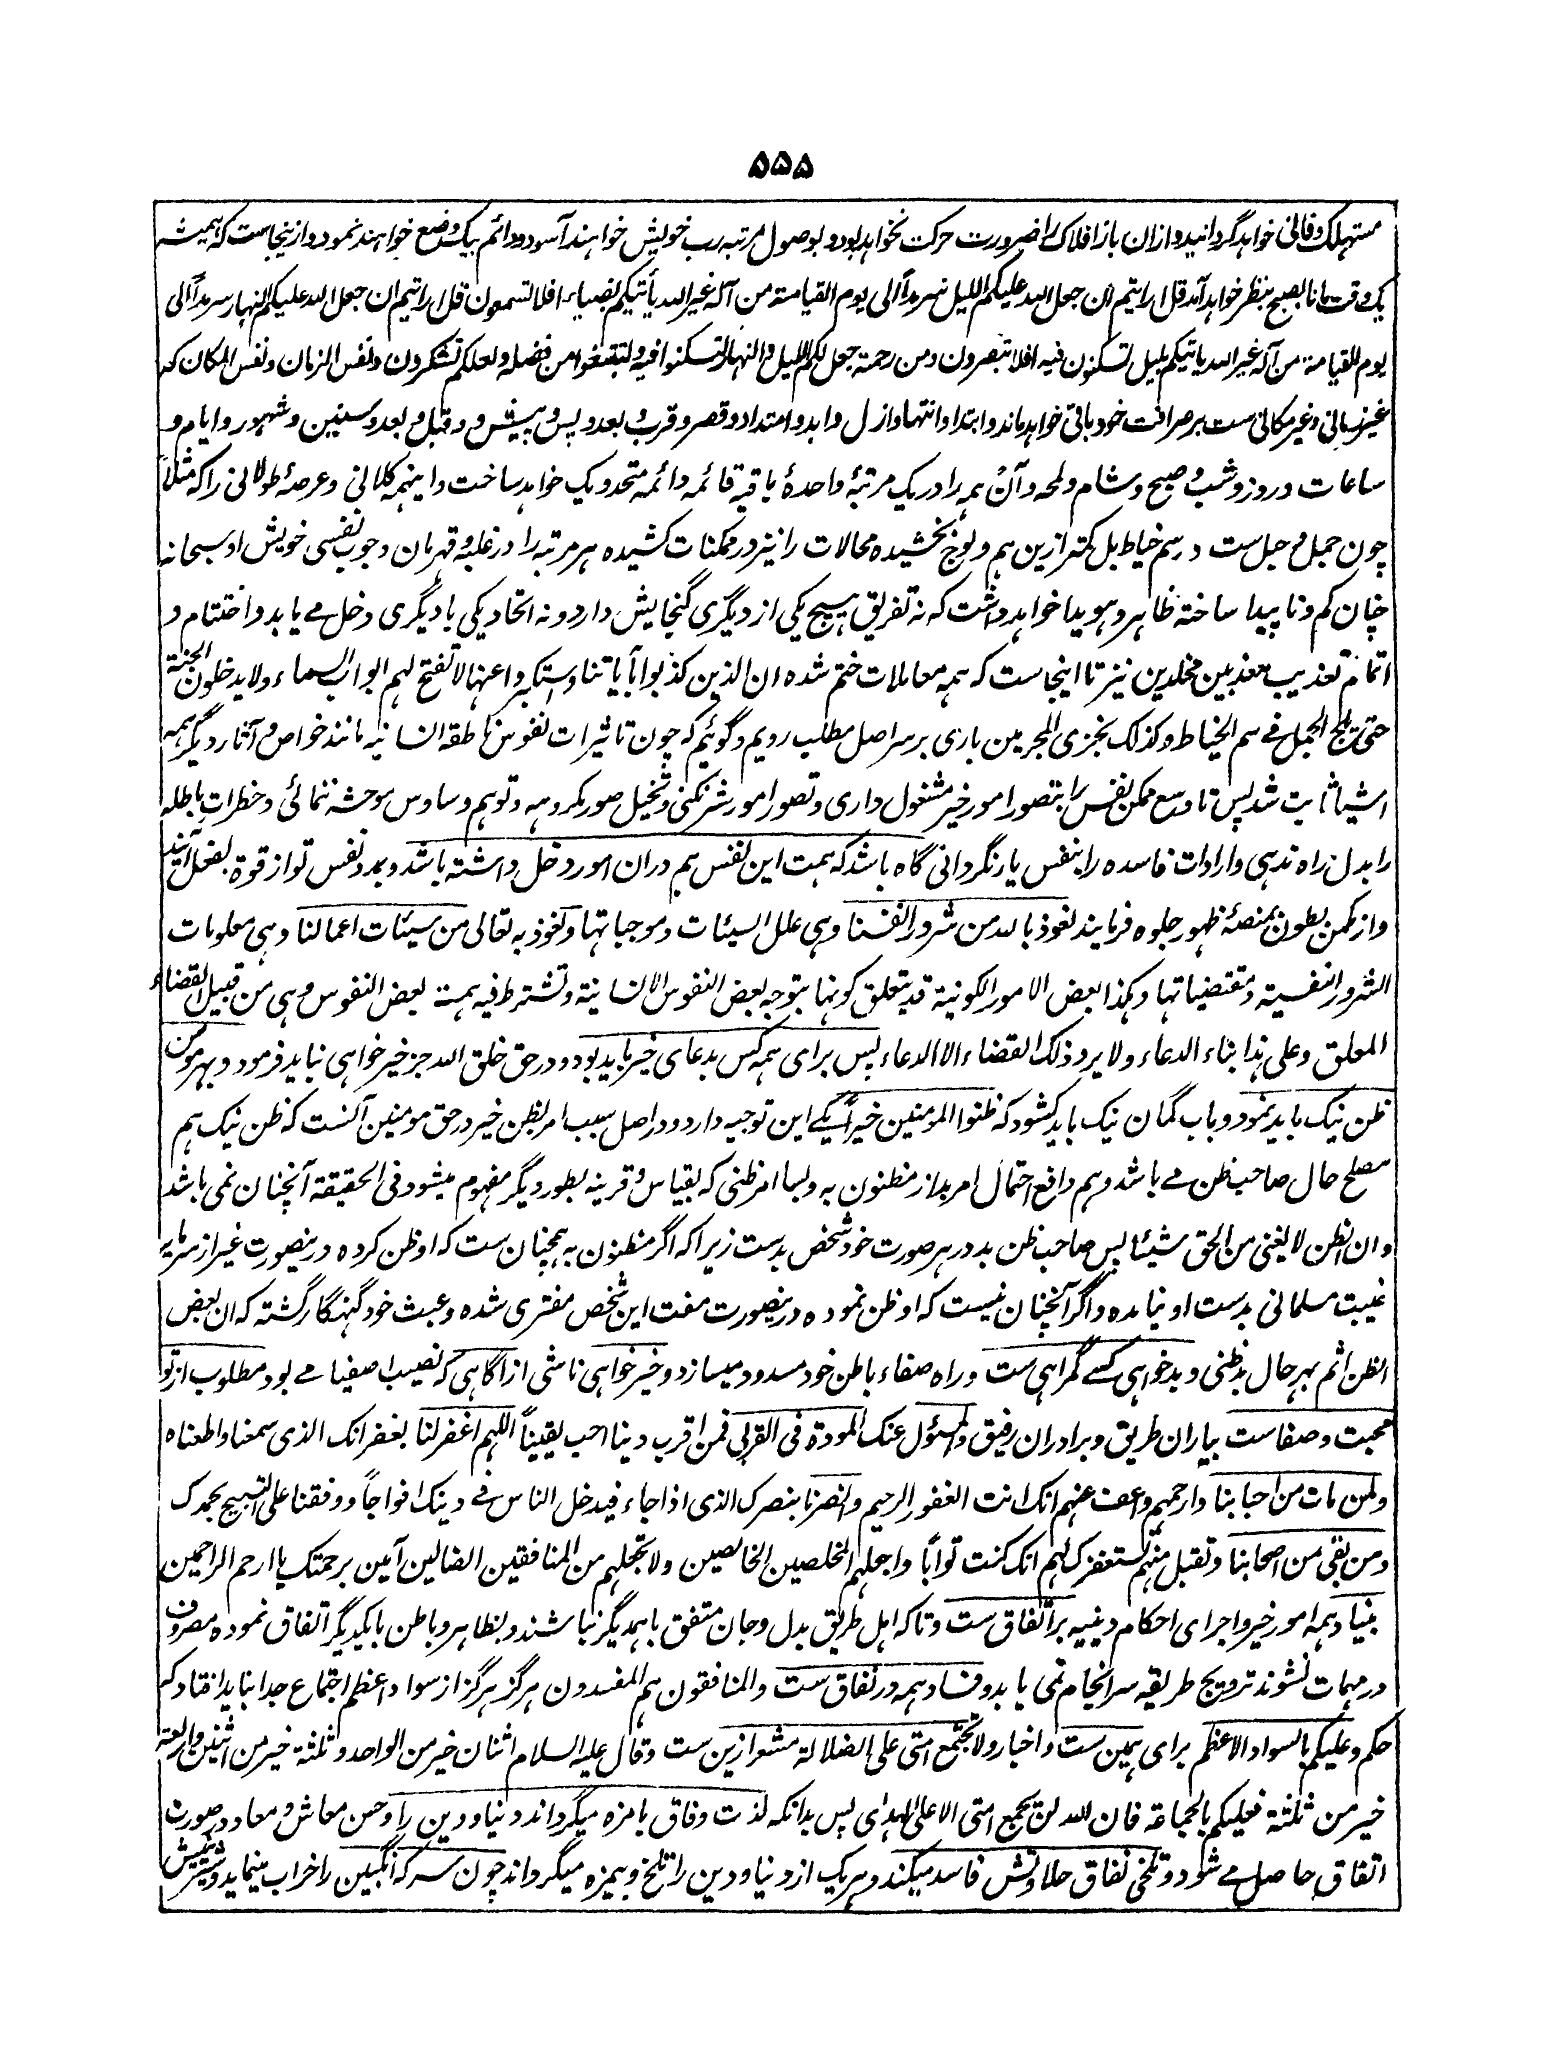 ۵۵۵
مستهلک و فانی خواهد گردانید و ازان باز افلاک را ضرورت حرکت نخواهد بود و بوصول مرتبه رب خویش خواهند آسود و دائم بیک وضع خواهند نمود و ازینجاست که همیشه
یک وقت مانا بصبح بنظر خواهد آمد قل ارایتم ان جعل الله علیکم اللیل سرمداً الی یوم القیامة من آله غیر الله یأتیکم بضیاء افلا تسمعون قل ارایتم ان جعل الله علیکم النهار سرمداً الی
یوم القیامة من آله غیر الله یاتیکم بلیل تسکنون فیه افلا تبصرون و من رحمته جعل لکم اللیل و النهار لتسکنوا فیه و لتبتغوا من فضله و لعلکم تشکرون و نفس الزمان و نفس المکان که
غیر زمانی و غیر مکانی ست بر صرافت خود باقی خواهد ماند و ابتدا و انتها و ازل و ابد و امتداد و قصر و قرب و بعد و پس و پیش و قبل و بعد و سنین و شهور و ایام و
ساعات و روز و شب و صبح و شام و لمحه و آن همه را در یک مرتبهٔ واحدهٔ باقیه قائمه دائمه متحد و یک خواهد ساخت و اینهمه کلانی و عرصهٔ طولانی را که مثلاً
چون جمل و جبل ست در سم خیاط بل کمتر ازین هم ولوج بخشیده محالات را نیز در ممکنات کشیده هر مرتبه را در غلبه و قهرمان وجوب نفسی خویش او سبحانه
چنان کم و ناپیدا ساخته ظاهر و هویدا خواهد داشت که نه تفریق هیچ یکی از دیگری گنجایش دارد و نه اتحاد یکی با دیگری دخل مے یابد و اختتام و
اتمام تعذیب معذبین مخلدین نیز تا اینجاست که همه معاملات ختم شده ان الذین کذبوا بآیاتنا و استکبروا عنها لا تفتح لهم ابواب السماء و لا یدخلون الجنة
حتی یلج الجمل فے سم الخیاط و کذلک نجزی المجرمین باری بر سر اصل مطلب رویم و گوئیم که چون تاثیرات نفوس ناطقه انسانیه مانند خواص و آثار دیگر همه
اشیا ثابت شد پس تا وسع ممکن نفس را بتصور امور خیر مشغول داری و تصور امور شر نکنی و تخیل صور مکروهه و توهم وساوس موحشه ننمائی و خطرات باطله
را بدل راه ندهی و ارادات فاسده را بنفس یار نگردانی گاه باشد که همت این نفس هم دران امور دخل داشته باشد و بمدد نفس تو از قوة بفعل آیند
و از مکمن بطون بمنصهٔ ظهور جلوه فرمایند نعوذ بالله من شرور انفسنا و هی علل السیئات و موجباتها و نعوذ به تعالی من سیئات اعمالنا و هی معلومات
الشرور النفسیة و مقتضیاتها و هکذا بعض الامور الکونیة قد یتعلق کونها بتوجه بعض النفوس الانسانیة و تشترط فیه همت بعض النفوس و هی من قبیل القضاء
المعلق و علی هذا بناء الدعاء و لا یرد ذلک القضاء الا الدعاء پس برای همه کس بدعای خیر باید بود و در حق خلق الله جز خیر خواهی نباید فرمود و بهر مومن
ظن نیک باید نمود و باب گمان نیک باید کشود که ظنوا المومنین خیراً یکے این توجیه دارد و در اصل سبب امر بظن خیر در حق مومنین آنست که ظن نیک هم
مصلح حال صاحب ظن مے باشد و هم دافع احتمال امر بد از مظنون به و بسا امر ظنی که بقیاس و قرینه بطور دیگر مفهوم میشود فی الحقیقة آنچنان نمی باشد
و ان الظن لا یغنی من الحق شیئا پس صاحب ظن بد در هر صورت خود شخص بدست زیرا که اگر مظنون به همچنان ست که او ظن کرده درینصورت غیر از سرمایه
غیبت مسلمانی بدست او نیامده و اگر آنچنان نیست که او ظن نموده درینصورت مفت این شخص مفتری شده و عبث خود گنهگار گشته که ان بعض
الظن اثم بهر حال بدظنی و بدخواهی کسے گمراهی ست و راه صفاء باطن خود مسدود میسازد و خیر خواهی ناشی از آگاهی که نصیب اصفیا مے بود مطلوب از تو
محبت و صفاست بیاران طریق و برادران رفیق و المسئول عنک المودة فی القربی فمن اقرب دینا احب یقیناً اللهم اغفر لنا بغفرانک الذی سمعنا و اطعناه
و لمن مات من احبابنا و ارحمهم و اعف عنهم انک انت الغفور الرحیم و انصرنا بنصرک الذی اذا جاء فیدخل الناس فے دینک افواجاً و وفقنا علی التسبیح بحمدک
و من بقی من اصحابنا و تقبل منهم نستغفرک لهم انک کنت تواباً و اجعلهم المخلصین الخالصین و لا تجعلهم من المنافقین الضالین آمین برحمتک یا ارحم الراحمین
بنیاد همه امور خیر و اجرای احکام دینیه بر اتفاق ست و تا که اهل طریق بدل و جان متفق با همدیگر نباشند و بظاهر و باطن با یکدیگر اتفاق نموده مصروف
در مهمات نشوند ترویج طریقه سرانجام نمی یابد و فساد همه در نفاق ست و المنافقون هم المفسدون هرگز هرگز از سواد اعظم اجتماع جدا نباید افتاد که
حکم و علیکم بالسواد الاعظم برای همین ست و اخبار و لا تجتمع امتی علی الضلالة مشعر ازین ست و قال علیه السلام اثنان خیر من الواحد و ثلثة خیر من اثنین و اربعة
خیر من ثلثة فعلیکم بالجماعة فان الله لن یجمع امتی الا علی الهدای پس بدانکه لذت وفاق با مزه میگرداند دنیا و دین را و حسن معاش و معاد در صورت
اتفاق حاصل مے شود و تلخی نفاق حلاوتش فاسد میکند و هر یک از دنیا و دین را تلخ و بیمزه میگرداند چون سرکه انگبین را خراب مینماید